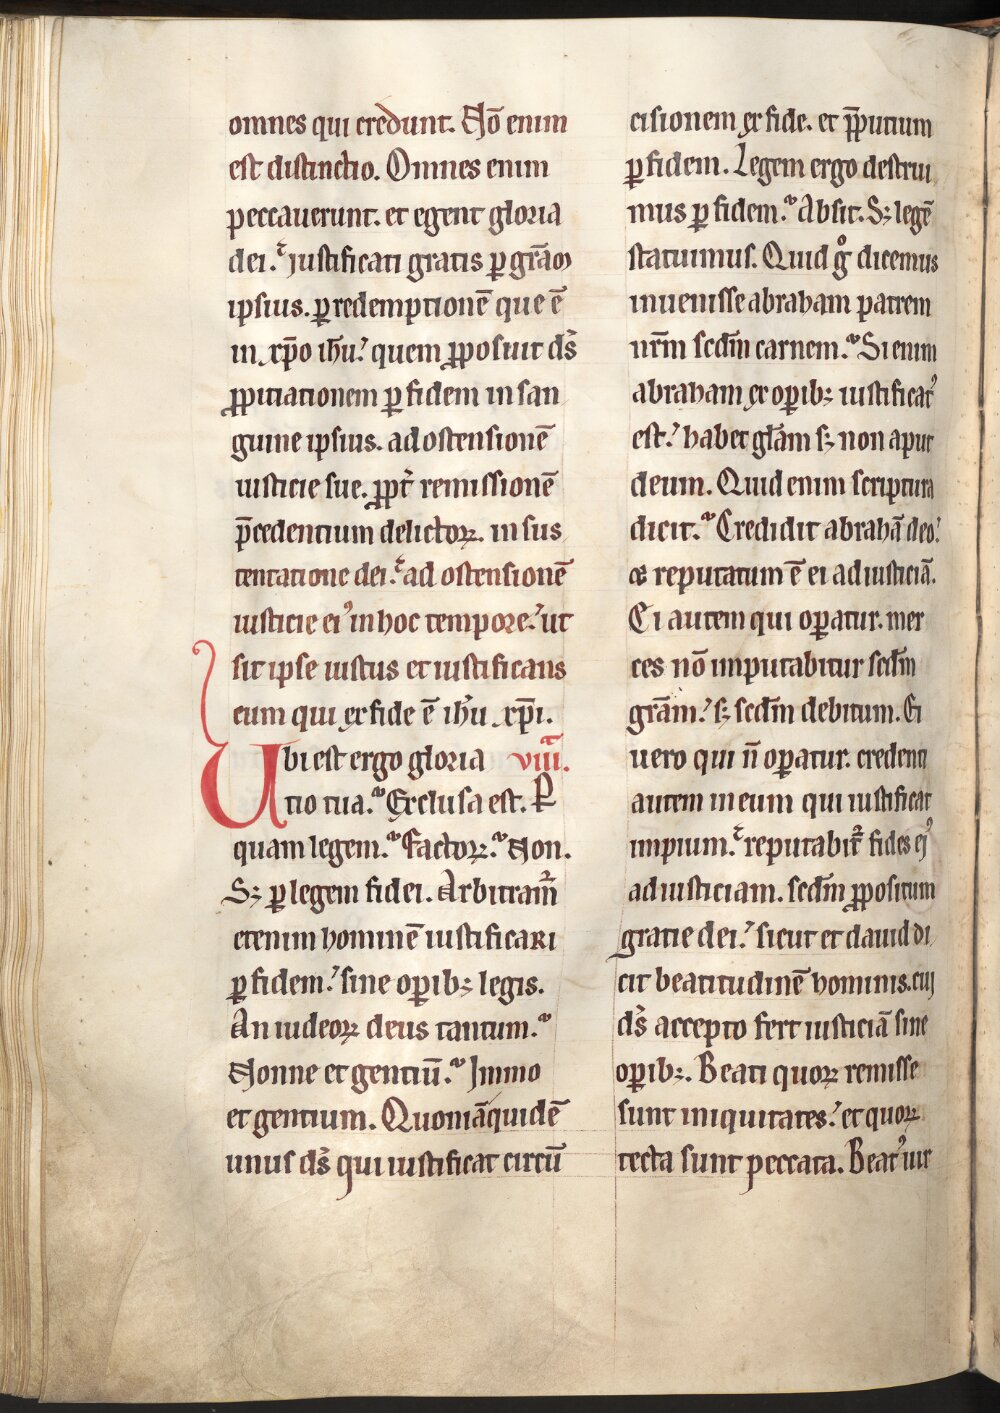 omnes qui credunt. Nō enim
est distinctio. Omnes enim
peccauerunt. et egent gloria
dei. iustificati gratis ꝑ gr̄am
ipsius. ꝑ redemptionē que ē
in xp̄o ih̄u. quem ꝓposuit ds̄
ꝓpitiationem ꝑ fidem in san
guine ipsius. ad ostensionē
iusticie sue. ꝓpt̄ remissionē
p̄cedentium delictoꝝ. in sus
tentatione dei. ad ostensionē
iusticie eiꝰ in hoc tempore. ut
sit ipse iustus et iustificans
eum qui ex fide ē ih̄u xp̄i.
Ubi est ergo gloria viiii.
tio tua. Exclusa est. P̄
quam legem. Factoꝝ. Non.
Sꝫ ꝑ legem fidei. Arbitram̄
etenim hominē iustificari
ꝑ fidem. sine oꝑibꝫ legis.
An iudeoꝝ deus tantum.
Nonne et gentiū. Immo
et gentium. Quoniā quidē
unus ds̄ qui iustificat circū
cisionem ex fide. et p̄putium
ꝑ fidem. Legem ergo destrui
mus ꝑ fidem. Absit. Sꝫ legē
statuimus. Quid gͦ dicemus
inuenisse abraham patrem
nr̄m scd̄m carnem. Si enim
abraham ex oꝑibꝫ iustificatꝰ
est. habet gl̄am sꝫ non aput
deum. Quid enim scriptura
dicit. Credidit abrahā deo.
et reputatum ē ei ad iusticiā.
Ei autem qui oꝑatur. mer
ces nō imputabitur scd̄m
gr̄am. sꝫ scd̄m debitum. Ei
uero qui n̄ oꝑatur. credenti
autem in eum qui iustificat
impium. reputabit᷑ fides eiꝰ
ad iusticiam. scd̄m ꝓpositum
gratie dei. sicut et dauid di
cit beatitudinē hominis. cui
ds̄ accepto fert iusticiā sine
oꝑibꝫ. Beati quoꝝ remisse
sunt iniquitates. et quoꝝ
tecta sunt peccata. Beatꝰ uir